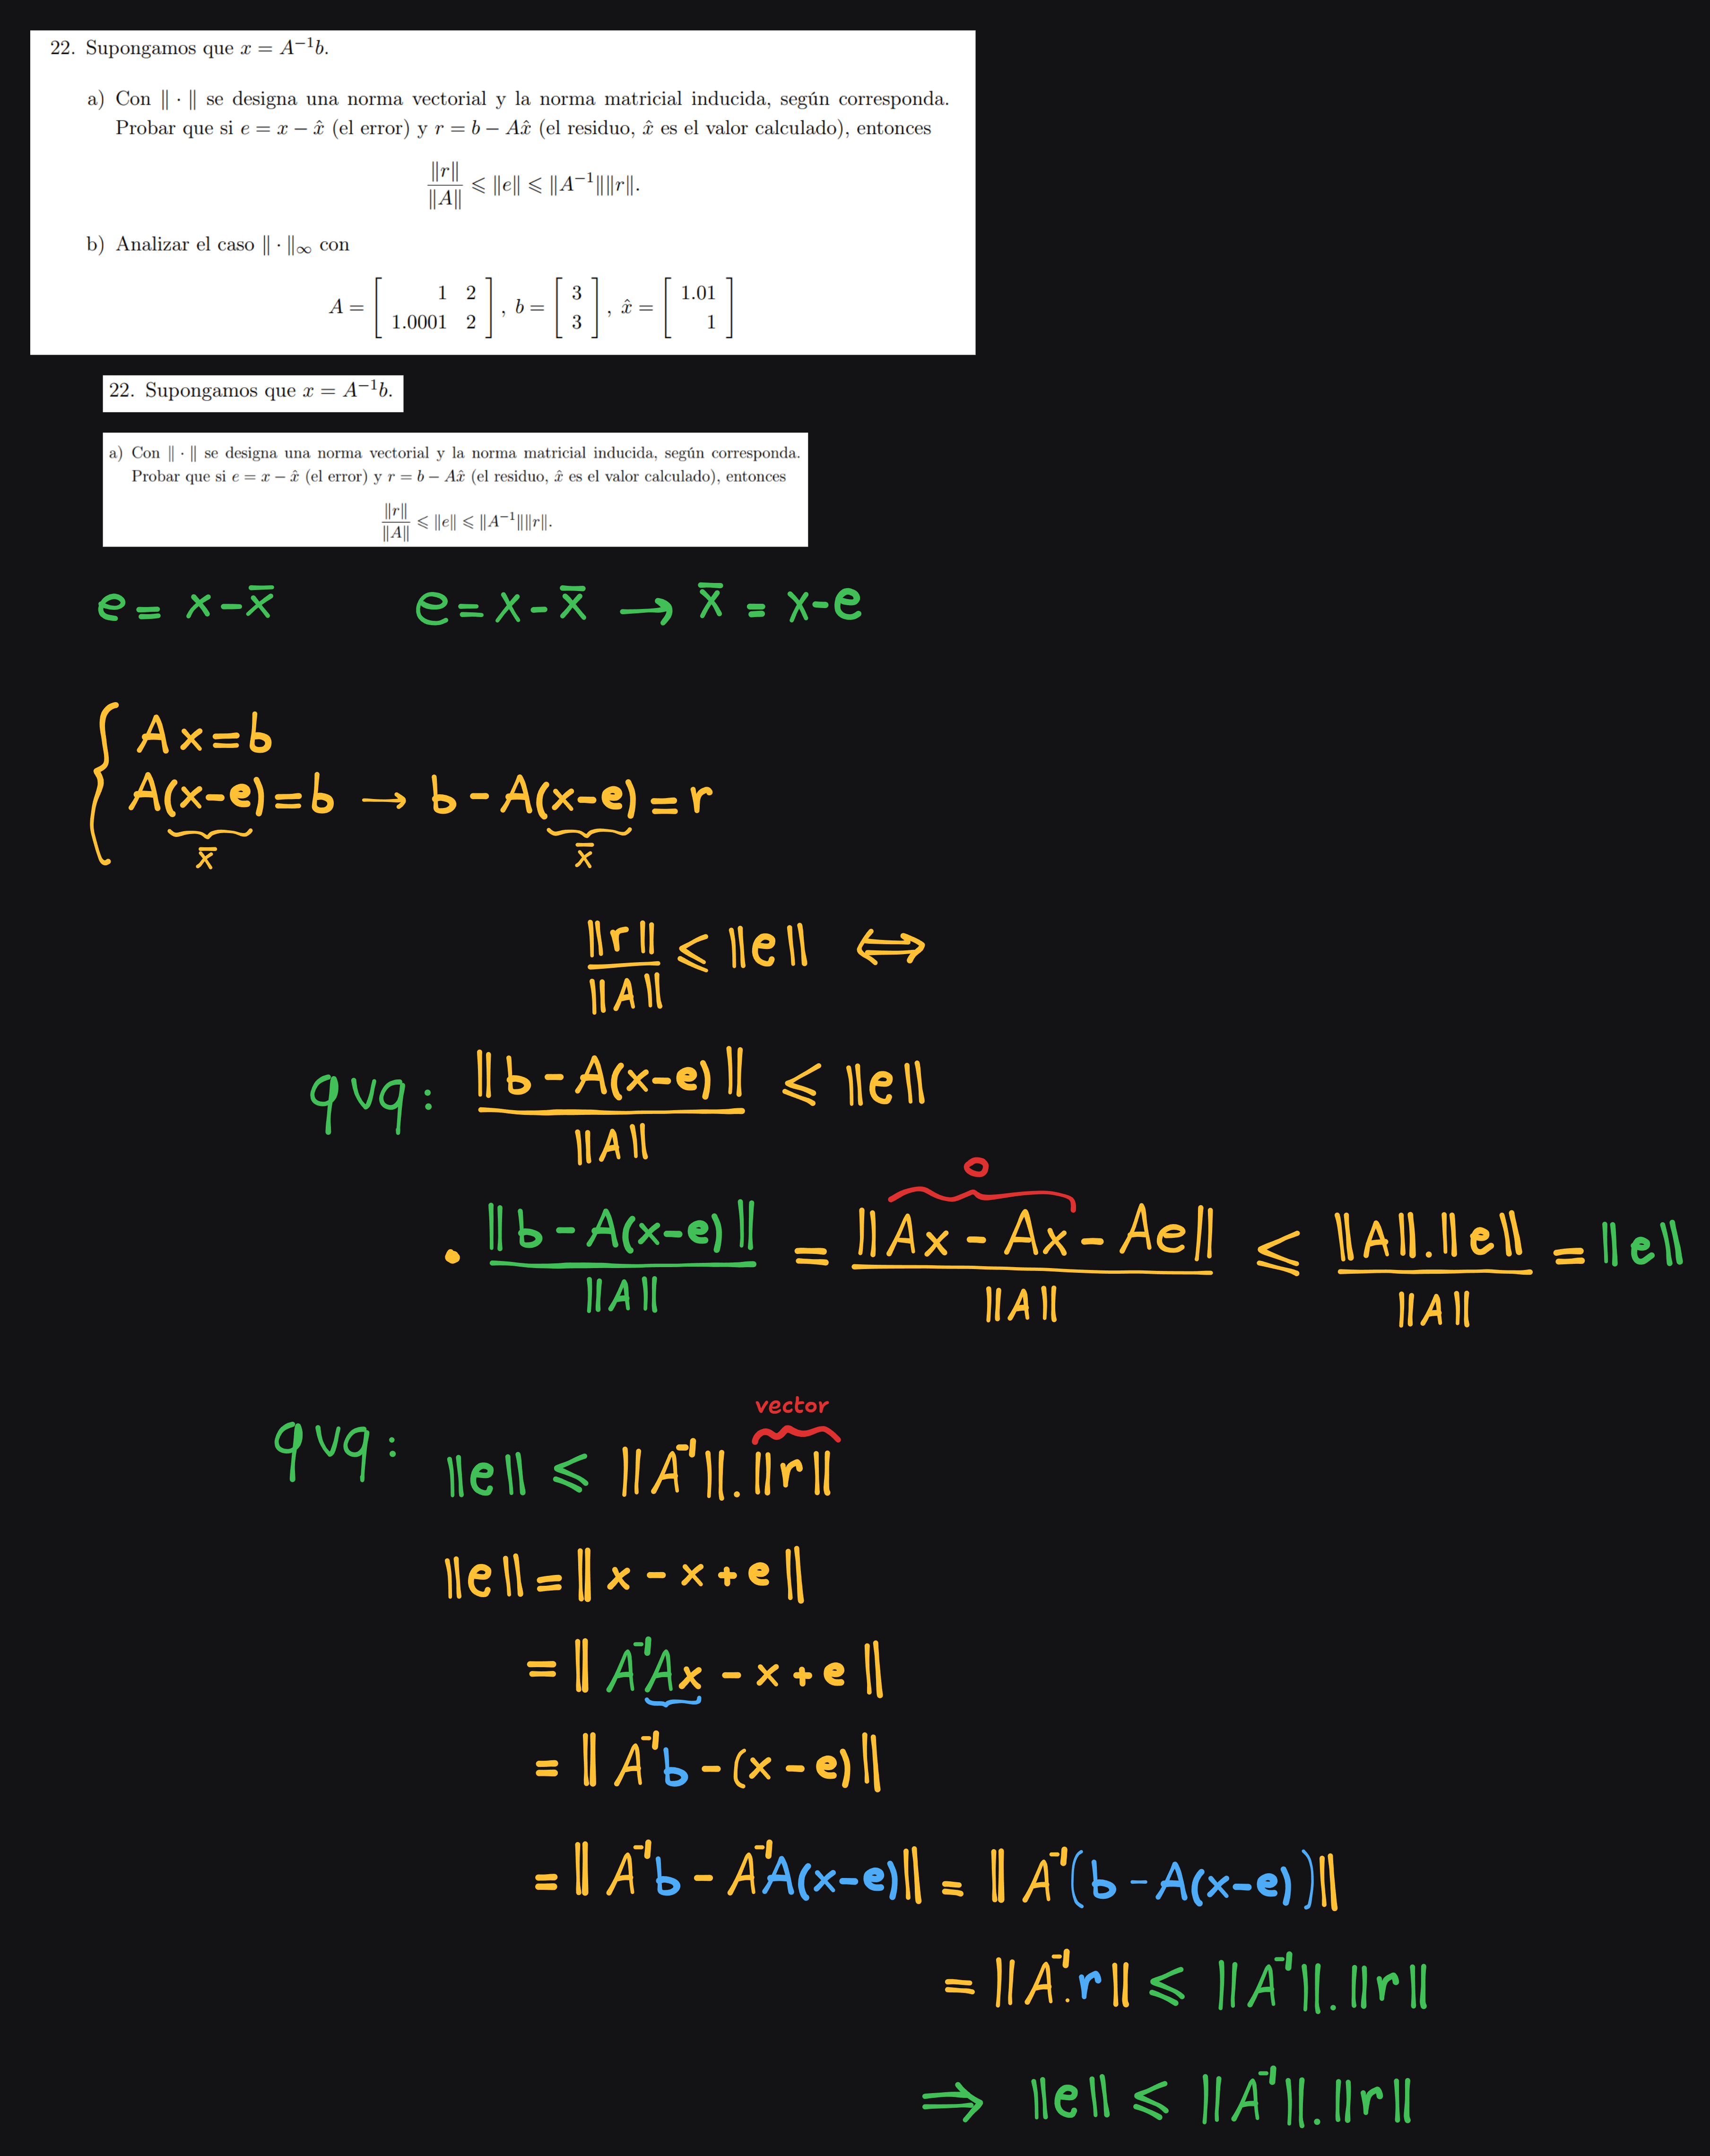 22. Supongamos que x = A⁻¹b.
a) Con ‖ · ‖ se designa una norma vectorial y la norma matricial inducida, según corresponda.
Probar que si e = x − x̂ (el error) y r = b − Ax̂ (el residuo, x̂ es el valor calculado), entonces
‖r‖/‖A‖ ⩽ ‖e‖ ⩽ ‖A⁻¹‖‖r‖.
b) Analizar el caso ‖ · ‖∞ con
A = [ 1 2 ; 1.0001 2 ], b = [ 3 ; 3 ], x̂ = [ 1.01 ; 1 ]
22. Supongamos que x = A⁻¹b.
a) Con ‖ · ‖ se designa una norma vectorial y la norma matricial inducida, según corresponda.
Probar que si e = x − x̂ (el error) y r = b − Ax̂ (el residuo, x̂ es el valor calculado), entonces
‖r‖/‖A‖ ⩽ ‖e‖ ⩽ ‖A⁻¹‖‖r‖.
e = x − x̄   e = x − x̄ → x̄ = x − e
{ Ax = b
A(x−e) = b → b − A(x−e) = r
x̄   x̄
‖r‖/‖A‖ ⩽ ‖e‖ ⟺
qvq: ‖b − A(x−e)‖/‖A‖ ⩽ ‖e‖
0
• ‖b − A(x−e)‖/‖A‖ = ‖Ax − Ax − Ae‖/‖A‖ ⩽ ‖A‖.‖e‖/‖A‖ = ‖e‖
vector
qvq: ‖e‖ ⩽ ‖A⁻¹‖.‖r‖
‖e‖ = ‖x − x + e‖
= ‖A⁻¹Ax − x + e‖
= ‖A⁻¹b − (x − e)‖
= ‖A⁻¹b − A⁻¹A(x−e)‖ = ‖A⁻¹(b − A(x−e))‖
= ‖A⁻¹.r‖ ⩽ ‖A⁻¹‖.‖r‖
⟹ ‖e‖ ⩽ ‖A⁻¹‖.‖r‖